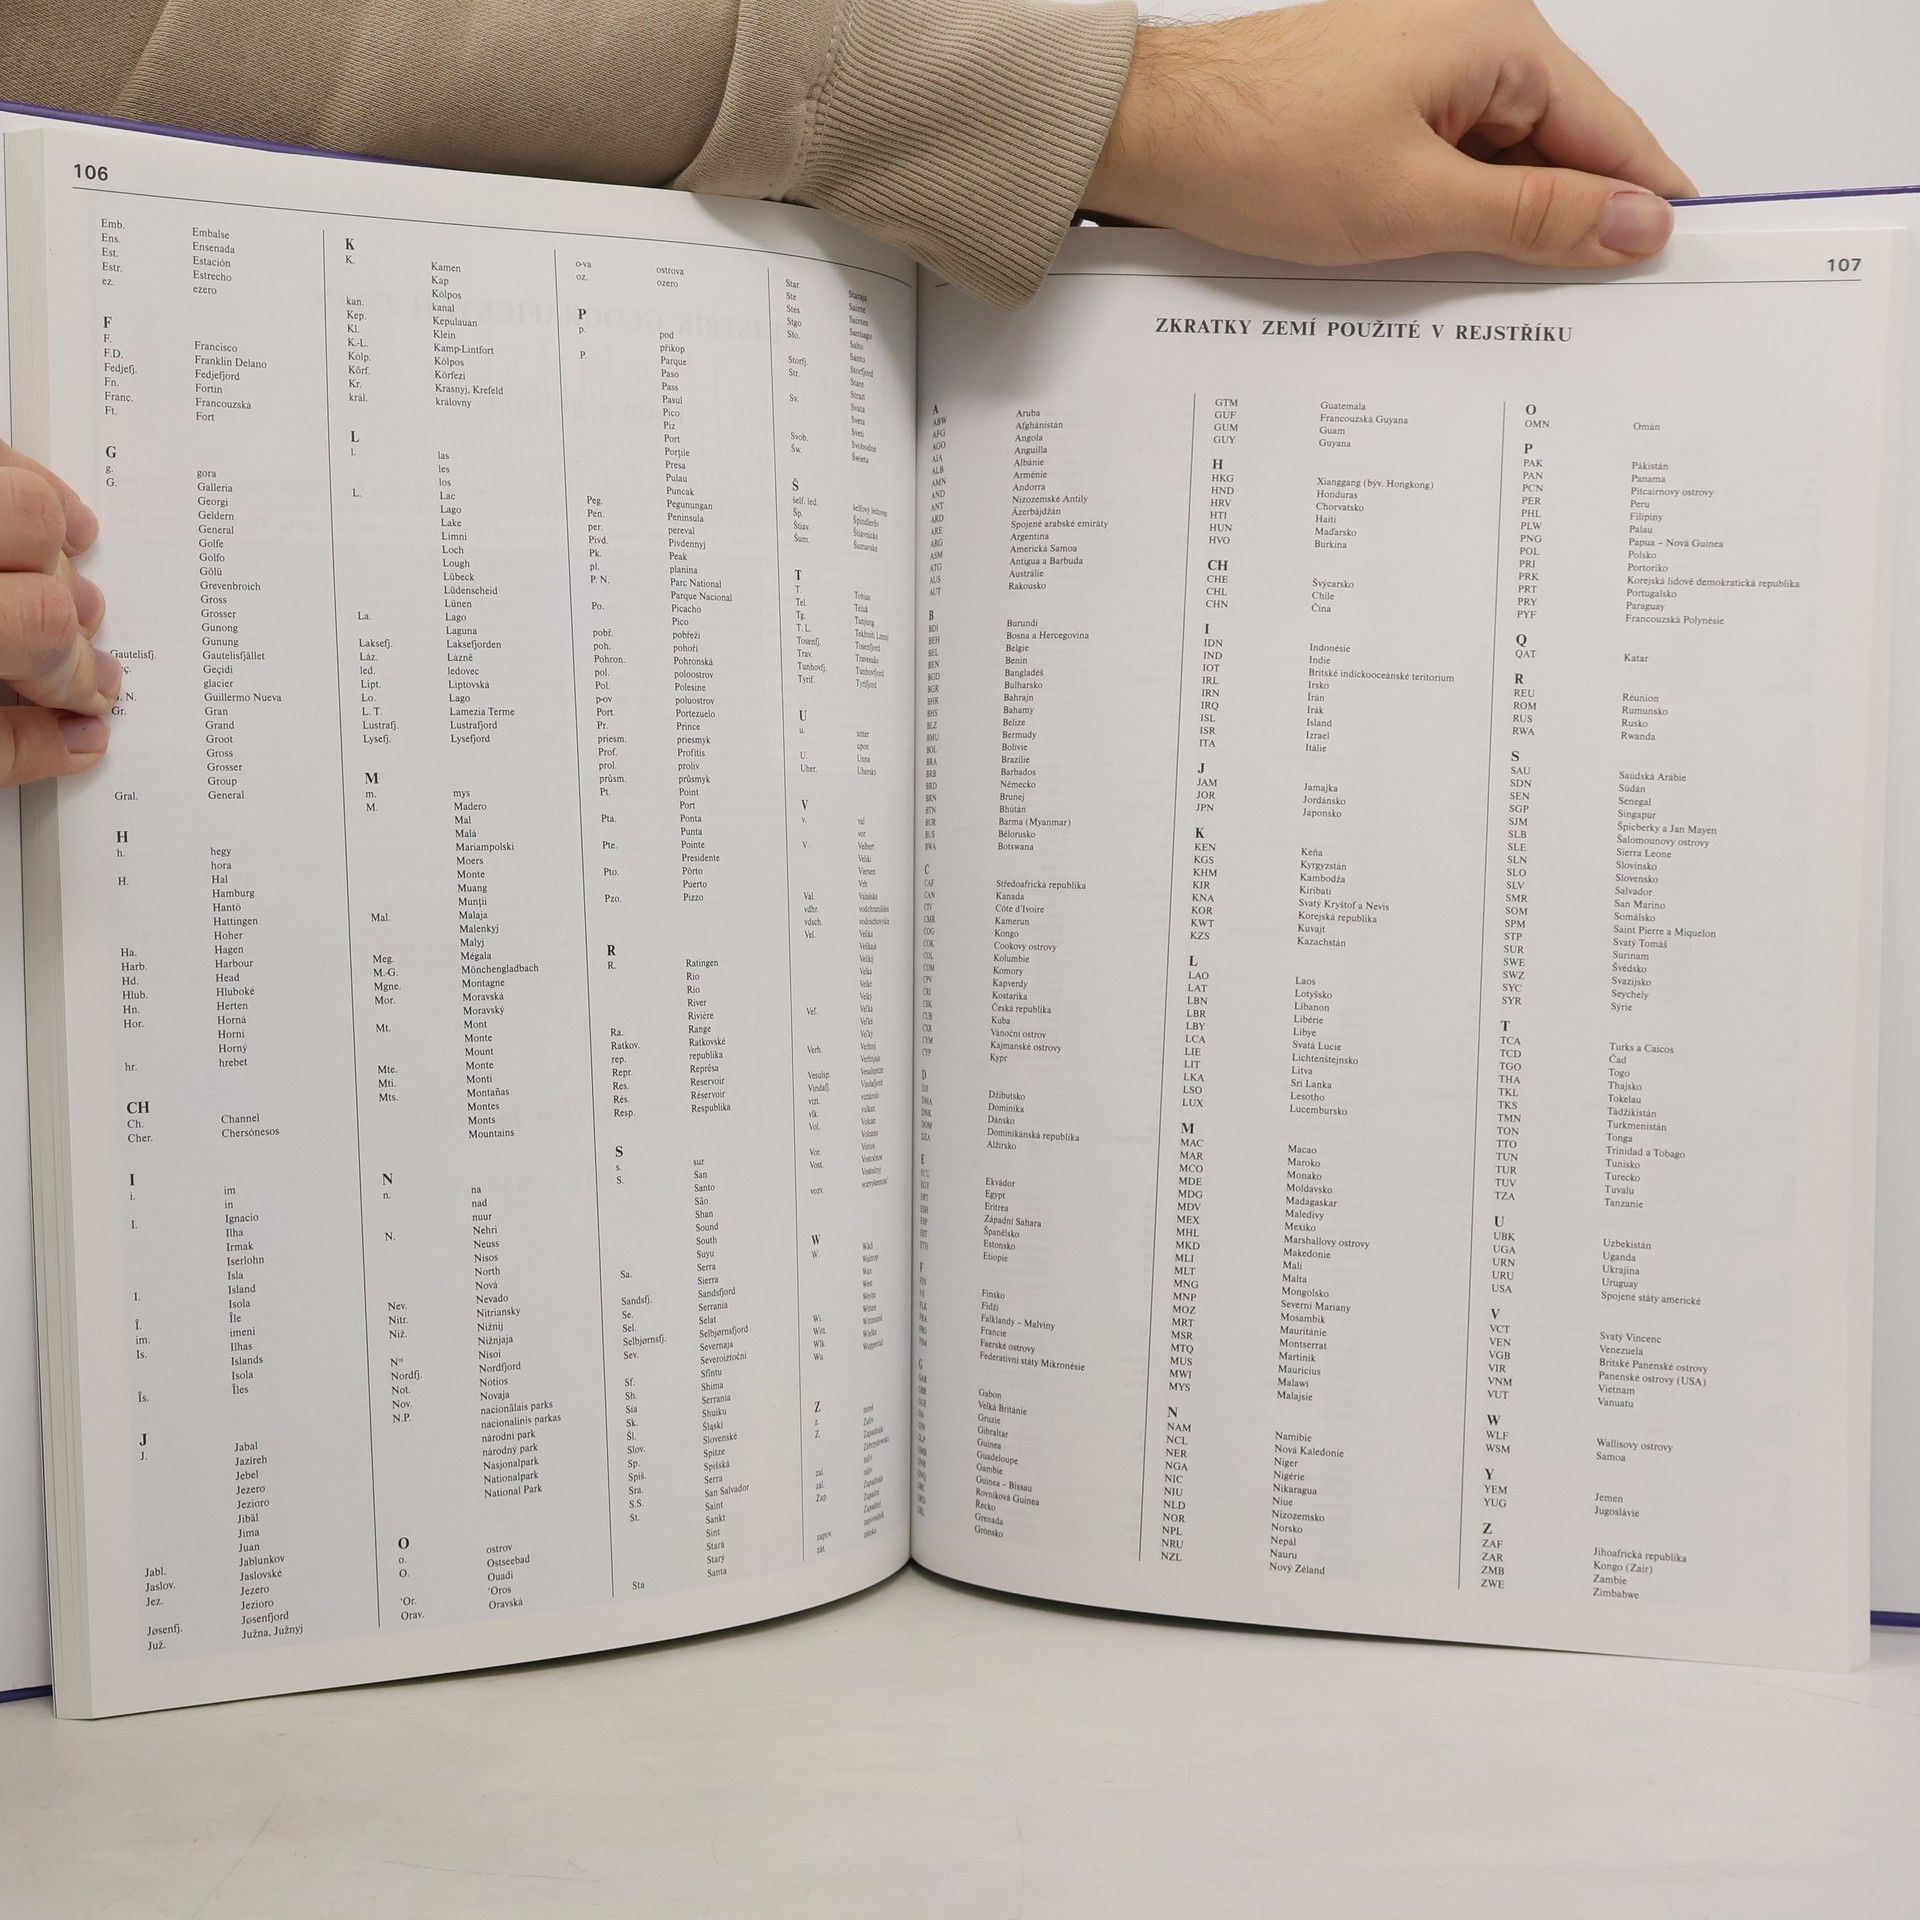 106
Emb. Embalse
Ens. Ensenada
Est. Estación
Estr. Estrecho
ez. ezero
F
F. Francisco
F.D. Franklin Delano
Fedjefj. Fedjefjord
Fn. Fortín
Franc. Francouzská
Ft. Fort
G
g. gora
G. Galleria
Georgi
Geldern
General
Golfe
Golfo
Gölü
Grevenbroich
Gross
Grosser
Gunong
Gunung
Gautelisfj. Gautelisfjället
Geçidi
glacier
Guillermo Nueva
Gr. Gran
Grand
Groot
Gross
Grosser
Group
Gral. General
H
h. hegy
hora
H. Hal
Hamburg
Hantō
Hattingen
Hoher
Ha. Hagen
Harb. Harbour
Hd. Head
Hlub. Hluboké
Hn. Herten
Hor. Horná
Horní
Horný
hr. hrebet
CH
Ch. Channel
Cher. Chersónesos
I
i. im
in
I. Ignacio
Ilha
Irmak
Iserlohn
Isla
Island
I. Isola
Î. Île
im. imeni
Is. Ilhas
Islands
Isola
Îs. Îles
J
J. Jabal
Jazireh
Jebel
Jezero
Jezioro
Jibāl
Jima
Juan
Jabl. Jablunkov
Jaslov. Jaslovské
Jez. Jezero
Jezioro
Jøsenfj. Jøsenfjord
Juž. Južna, Južnyj
K
K. Kamen
Kap
Kólpos
kan. kanál
Kep. Kepulauan
Kl. Klein
K.-L. Kamp-Lintfort
Kólp. Kólpos
Körf. Körfezi
Kr. Krasnyj, Krefeld
král. královny
L
l. las
les
los
L. Lac
Lago
Lake
Limni
Loch
Lough
Lübeck
Lüdenscheid
Lünen
La. Lago
Laguna
Laksefj. Laksefjorden
Láz. Lázně
led. ledovec
Lipt. Liptovská
Lo. Lago
L. T. Lamezia Terme
Lustrafj. Lustrafjord
Lysefj. Lysefjord
M
m. mys
M. Madero
Mal
Malá
Mariampolski
Moers
Monte
Muang
Munţii
Mal. Malaja
Malenkyj
Malyj
Meg. Mégala
M.-G. Mönchengladbach
Mgne. Montagne
Mor. Moravská
Moravský
Mt. Mont
Monte
Mount
Mte. Monte
Mti. Monti
Mts. Montañas
Montes
Monts
Mountains
N
n. na
nad
nuur
N. Nehri
Neuss
Nisos
North
Nová
Nev. Nevado
Nitr. Nitriansky
Niž. Nižnij
Nižnjaja
Nisoi
Nordfj. Nordfjord
Not. Nótios
Nov. Novaja
N.P. nacionālais parks
nacionalinis parkas
národní park
národný park
Nasjonalpark
Nationalpark
National Park
O
o. ostrov
O. Ostseebad
Ouadi
'Or. 'Oros
Orav. Oravská
o-va ostrova
oz. ozero
P
p. pod
příkop
P. Parque
Paso
Pass
Pasul
Pico
Piz
Port
Porţile
Presa
Pulau
Puncak
Peg. Pegunungan
Pen. Peninsula
per. pereval
Pivd. Pivdennyj
Pk. Peak
pl. planina
P. N. Parc National
Parque Nacional
Po. Picacho
Pico
pobř. pobřeží
poh. pohoří
Pohron. Pohronská
pol. poloostrov
Pol. Polesine
p-ov poluostrov
Port. Portezuelo
Pr. Prince
priesm. priesmyk
Prof. Profitis
prol. proliv
průsm. průsmyk
Pt. Point
Port
Pta. Ponta
Punta
Pte. Pointe
Presidente
Pto. Pôrto
Puerto
Pzo. Pizzo
R
R. Ratingen
Rio
Río
River
Rivière
Ra. Range
Ratkov. Ratkovské
rep. republika
Repr. Reprêsa
Res. Reservoir
Rés. Réservoir
Resp. Respublika
S
s. sur
S. San
Santo
São
Shan
Sound
South
Suyu
Sa. Serra
Sierra
Sandsfj. Sandsfjord
Se. Serrania
Sel. Selat
Selbjørnsfj. Selbjørnsfjord
Sev. Severnaja
Severoiztočni
Sf. Sfîntu
Sh. Shima
Sia Serrania
Sk. Shuiku
Śl. Śląski
Slov. Slovenské
Sp. Spitze
Spiš. Spišská
Sra. Serra
S.S. San Salvador
St. Saint
Sankt
Sint
Stará
Starý
Sta Santa
Star. Staraja
Ste Sainte
Stes Saintes
Stgo Santiago
Sto. Salto
Santo
Storfj. Storfjord
Str. Stare
Strait
Sv. Svatá
Sveta
Sveti
Svob. Svobodné
Św. Święta
Š
šelf. led. šelfový ledovec
Šp. Špindlerův
Štiav. Štiavnické
Šum. Šumavské
T
T. Tobias
Tel. Teluk
Tg. Tanjung
T. L. Tekhniti Limni
Tosenfj. Tosenfjord
Trav. Travessão
Tunhovfj. Tunhovfjord
Tyrif. Tyrifjord
U
u. unter
upon
U. Unna
Uher. Uherský
V
v. val
vor
V. Velbert
Veliki
Viersen
Vrh
Val. Valašské
vdhr. vodohranilišče
vdsch. vodoschovyšče
Vel. Velika
Velikaja
Velikij
Velká
Velké
Velký
Veľ. Veľká
Veľké
Veľký
Verh. Verhnij
Verhnjaja
Vesulsp. Vesulspitze
Vindafj. Vindafjord
vlk. vulkan
Vol. Volcán
Volcano
Vor.
Vost. Vostočnyj
vozv. vozvyšennosť
W
W. Wādī
Waltrop
Wan
West
Weyhe
Witten
Wi. Wittmund
Wlk. Wielka
Wu. Wuppertal
Z
z. země
Z. Zaliv
Zapadnaja
zal. zaliv
zál. záliv
Zap. Zapadnaja
Zapadni
Zapadnyj
zapov. zapovednik
zát. zátoka
107
ZKRATKY ZEMÍ POUŽITÉ V REJSTŘÍKU
A
ABW Aruba
AFG Afghánistán
AGO Angola
AIA Anguilla
ALB Albánie
AMN Arménie
AND Andorra
ANT Nizozemské Antily
ARD Ázerbájdžán
ARE Spojené arabské emiráty
ARG Argentina
ASM Americká Samoa
ATG Antigua a Barbuda
AUS Austrálie
AUT Rakousko
B
BDI Burundi
BEH Bosna a Hercegovina
BEL Belgie
BEN Benin
BGD Bangladéš
BGR Bulharsko
BHR Bahrajn
BHS Bahamy
BLZ Belize
BMU Bermudy
BOL Bolívie
BRA Brazílie
BRB Barbados
BRD Německo
BRN Brunej
BTN Bhútán
BUR Barma (Myanmar)
BUS Bělorusko
BWA Botswana
C
CAF Středoafrická republika
CAN Kanada
CIV Côte d'Ivoire
CMR Kamerun
COG Kongo
COK Cookovy ostrovy
COL Kolumbie
COM Komory
CPV Kapverdy
CRI Kostarika
CSK Česká republika
CUB Kuba
CXR Vánoční ostrov
CYM Kajmanské ostrovy
CYP Kypr
D
DJI Džibutsko
DMA Dominika
DNK Dánsko
DOM Dominikánská republika
DZA Alžírsko
E
ECU Ekvádor
EGY Egypt
ERT Eritrea
ESH Západní Sahara
ESP Španělsko
EST Estonsko
ETH Etiopie
F
FIN Finsko
FJI Fidži
FLK Falklandy – Malvíny
FRA Francie
FRO Faerské ostrovy
FSM Federativní státy Mikronésie
G
GAB Gabon
GBR Velká Británie
GGE Gruzie
GIB Gibraltar
GIN Guinea
GLP Guadeloupe
GMB Gambie
GNB Guinea – Bissau
GNQ Rovníková Guinea
GRC Řecko
GRD Grenada
GRL Grónsko
GTM Guatemala
GUF Francouzská Guyana
GUM Guam
GUY Guyana
H
HKG Xianggang (býv. Hongkong)
HND Honduras
HRV Chorvatsko
HTI Haiti
HUN Maďarsko
HVO Burkina
CH
CHE Švýcarsko
CHL Chile
CHN Čína
I
IDN Indonésie
IND Indie
IOT Britské indickooceánské teritorium
IRL Irsko
IRN Írán
IRQ Irák
ISL Island
ISR Izrael
ITA Itálie
J
JAM Jamajka
JOR Jordánsko
JPN Japonsko
K
KEN Keňa
KGS Kyrgyzstán
KHM Kambodža
KIR Kiribati
KNA Svatý Kryštof a Nevis
KOR Korejská republika
KWT Kuvajt
KZS Kazachstán
L
LAO Laos
LAT Lotyšsko
LBN Libanon
LBR Libérie
LBY Libye
LCA Svatá Lucie
LIE Lichtenštejnsko
LIT Litva
LKA Srí Lanka
LSO Lesotho
LUX Lucembursko
M
MAC Macao
MAR Maroko
MCO Monako
MDE Moldavsko
MDG Madagaskar
MDV Maledivy
MEX Mexiko
MHL Marshallovy ostrovy
MKD Makedonie
MLI Mali
MLT Malta
MNG Mongolsko
MNP Severní Mariany
MOZ Mosambik
MRT Mauritánie
MSR Montserrat
MTQ Martinik
MUS Mauricius
MWI Malawi
MYS Malajsie
N
NAM Namibie
NCL Nová Kaledonie
NER Niger
NGA Nigérie
NIC Nikaragua
NIU Niue
NLD Nizozemsko
NOR Norsko
NPL Nepál
NRU Nauru
NZL Nový Zéland
O
OMN Omán
P
PAK Pákistán
PAN Panama
PCN Pitcairnovy ostrovy
PER Peru
PHL Filipíny
PLW Palau
PNG Papua – Nová Guinea
POL Polsko
PRI Portoriko
PRK Korejská lidově demokratická republika
PRT Portugalsko
PRY Paraguay
PYF Francouzská Polynésie
Q
QAT Katar
R
REU Réunion
ROM Rumunsko
RUS Rusko
RWA Rwanda
S
SAU Saúdská Arábie
SDN Súdán
SEN Senegal
SGP Singapur
SJM Špicberky a Jan Mayen
SLB Šalomounovy ostrovy
SLE Sierra Leone
SLN Slovinsko
SLO Slovensko
SLV Salvador
SMR San Marino
SOM Somálsko
SPM Saint Pierre a Miquelon
STP Svatý Tomáš
SUR Surinam
SWE Švédsko
SWZ Svazijsko
SYC Seychely
SYR Sýrie
T
TCA Turks a Caicos
TCD Čad
TGO Togo
THA Thajsko
TKL Tokelau
TKS Tádžikistán
TMN Turkmenistán
TON Tonga
TTO Trinidad a Tobago
TUN Tunisko
TUR Turecko
TUV Tuvalu
TZA Tanzanie
U
UBK Uzbekistán
UGA Uganda
URN Ukrajina
URU Uruguay
USA Spojené státy americké
V
VCT Svatý Vincenc
VEN Venezuela
VGB Britské Panenské ostrovy
VIR Panenské ostrovy (USA)
VNM Vietnam
VUT Vanuatu
W
WLF Wallisovy ostrovy
WSM Samoa
Y
YEM Jemen
YUG Jugoslávie
Z
ZAF Jihoafrická republika
ZAR Kongo (Zair)
ZMB Zambie
ZWE Zimbabwe